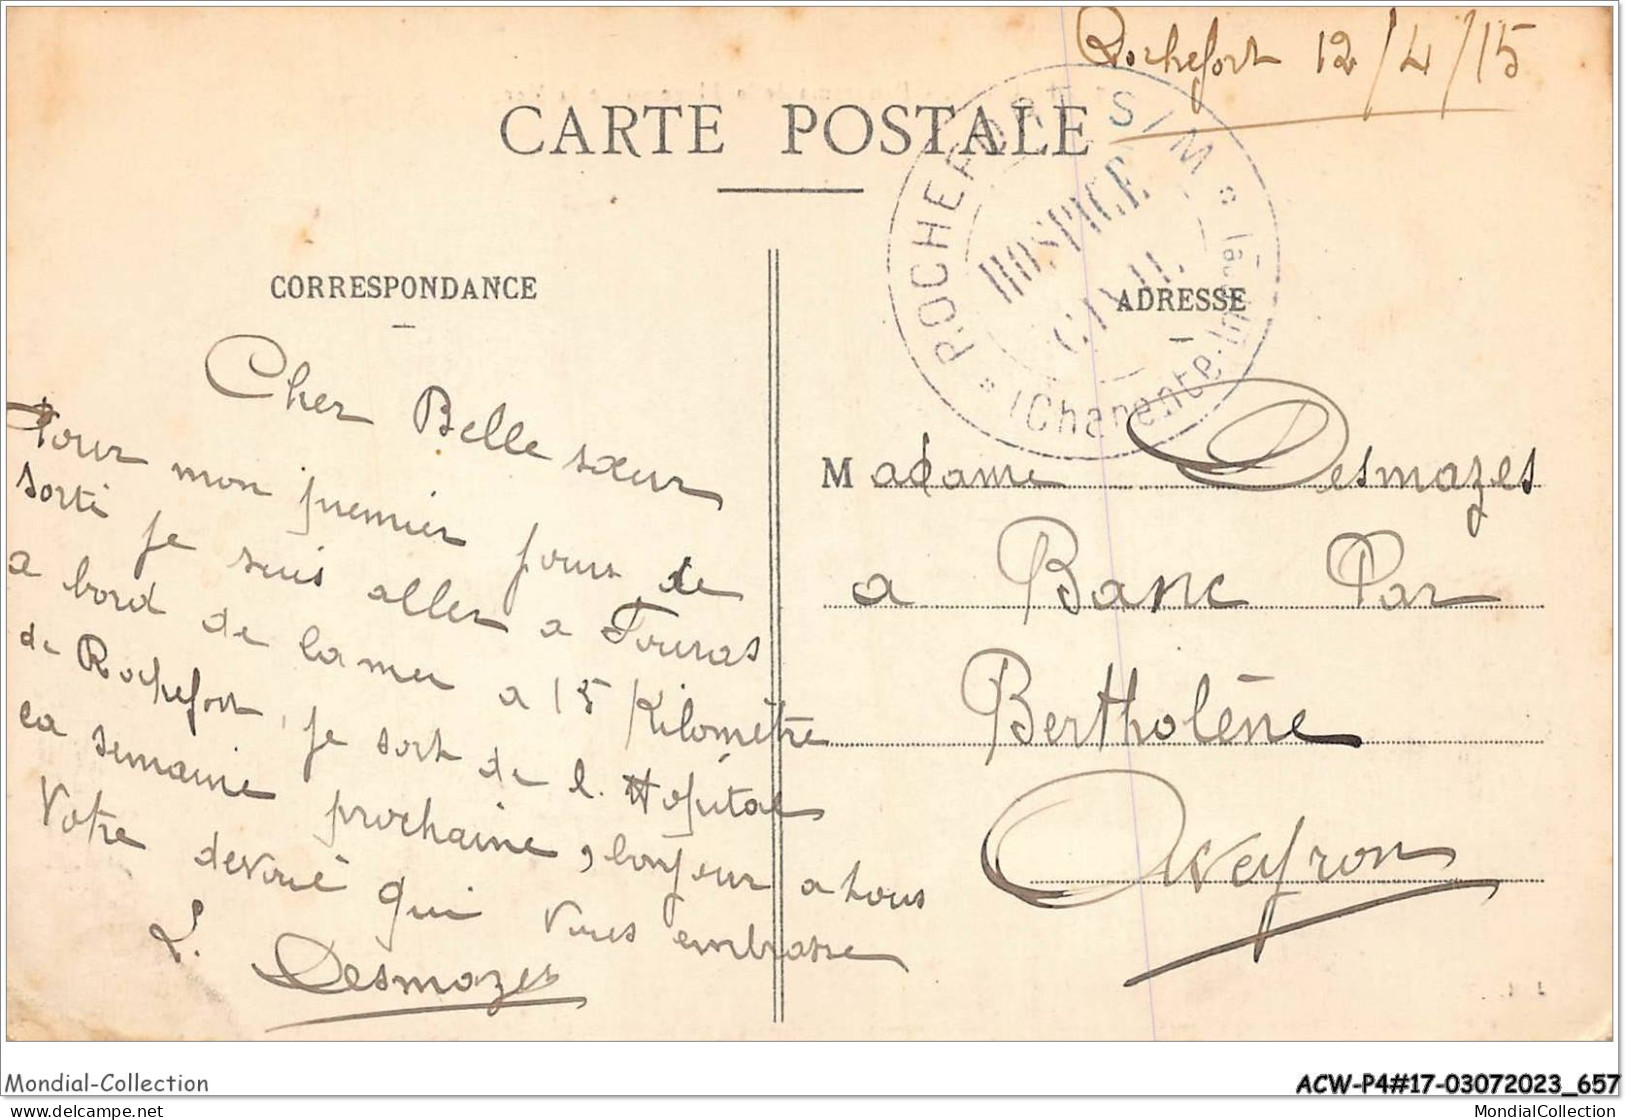 Rochefort 12/4/15
CARTE POSTALE
ROCHEFORT S/M
HOSPICE
CIVIL
(Charente-Inf
CORRESPONDANCE
ADRESSE
Cher Belle sœur
Pour mon premier jour de
sorti je suis aller a Fouras
a bord de la mer a 15 Kilomètre
de Rochefort, je sort de l. Hopital
la semaine prochaine, bonjour a tous
Votre devoué qui vous embrasse
L. Desmazes
Madame Desmazes
a Banc Par
Bertholène
Aveyron
Mondial-Collection
ACW-P4#17-03072023_657
www.delcampe.net
MondialCollection